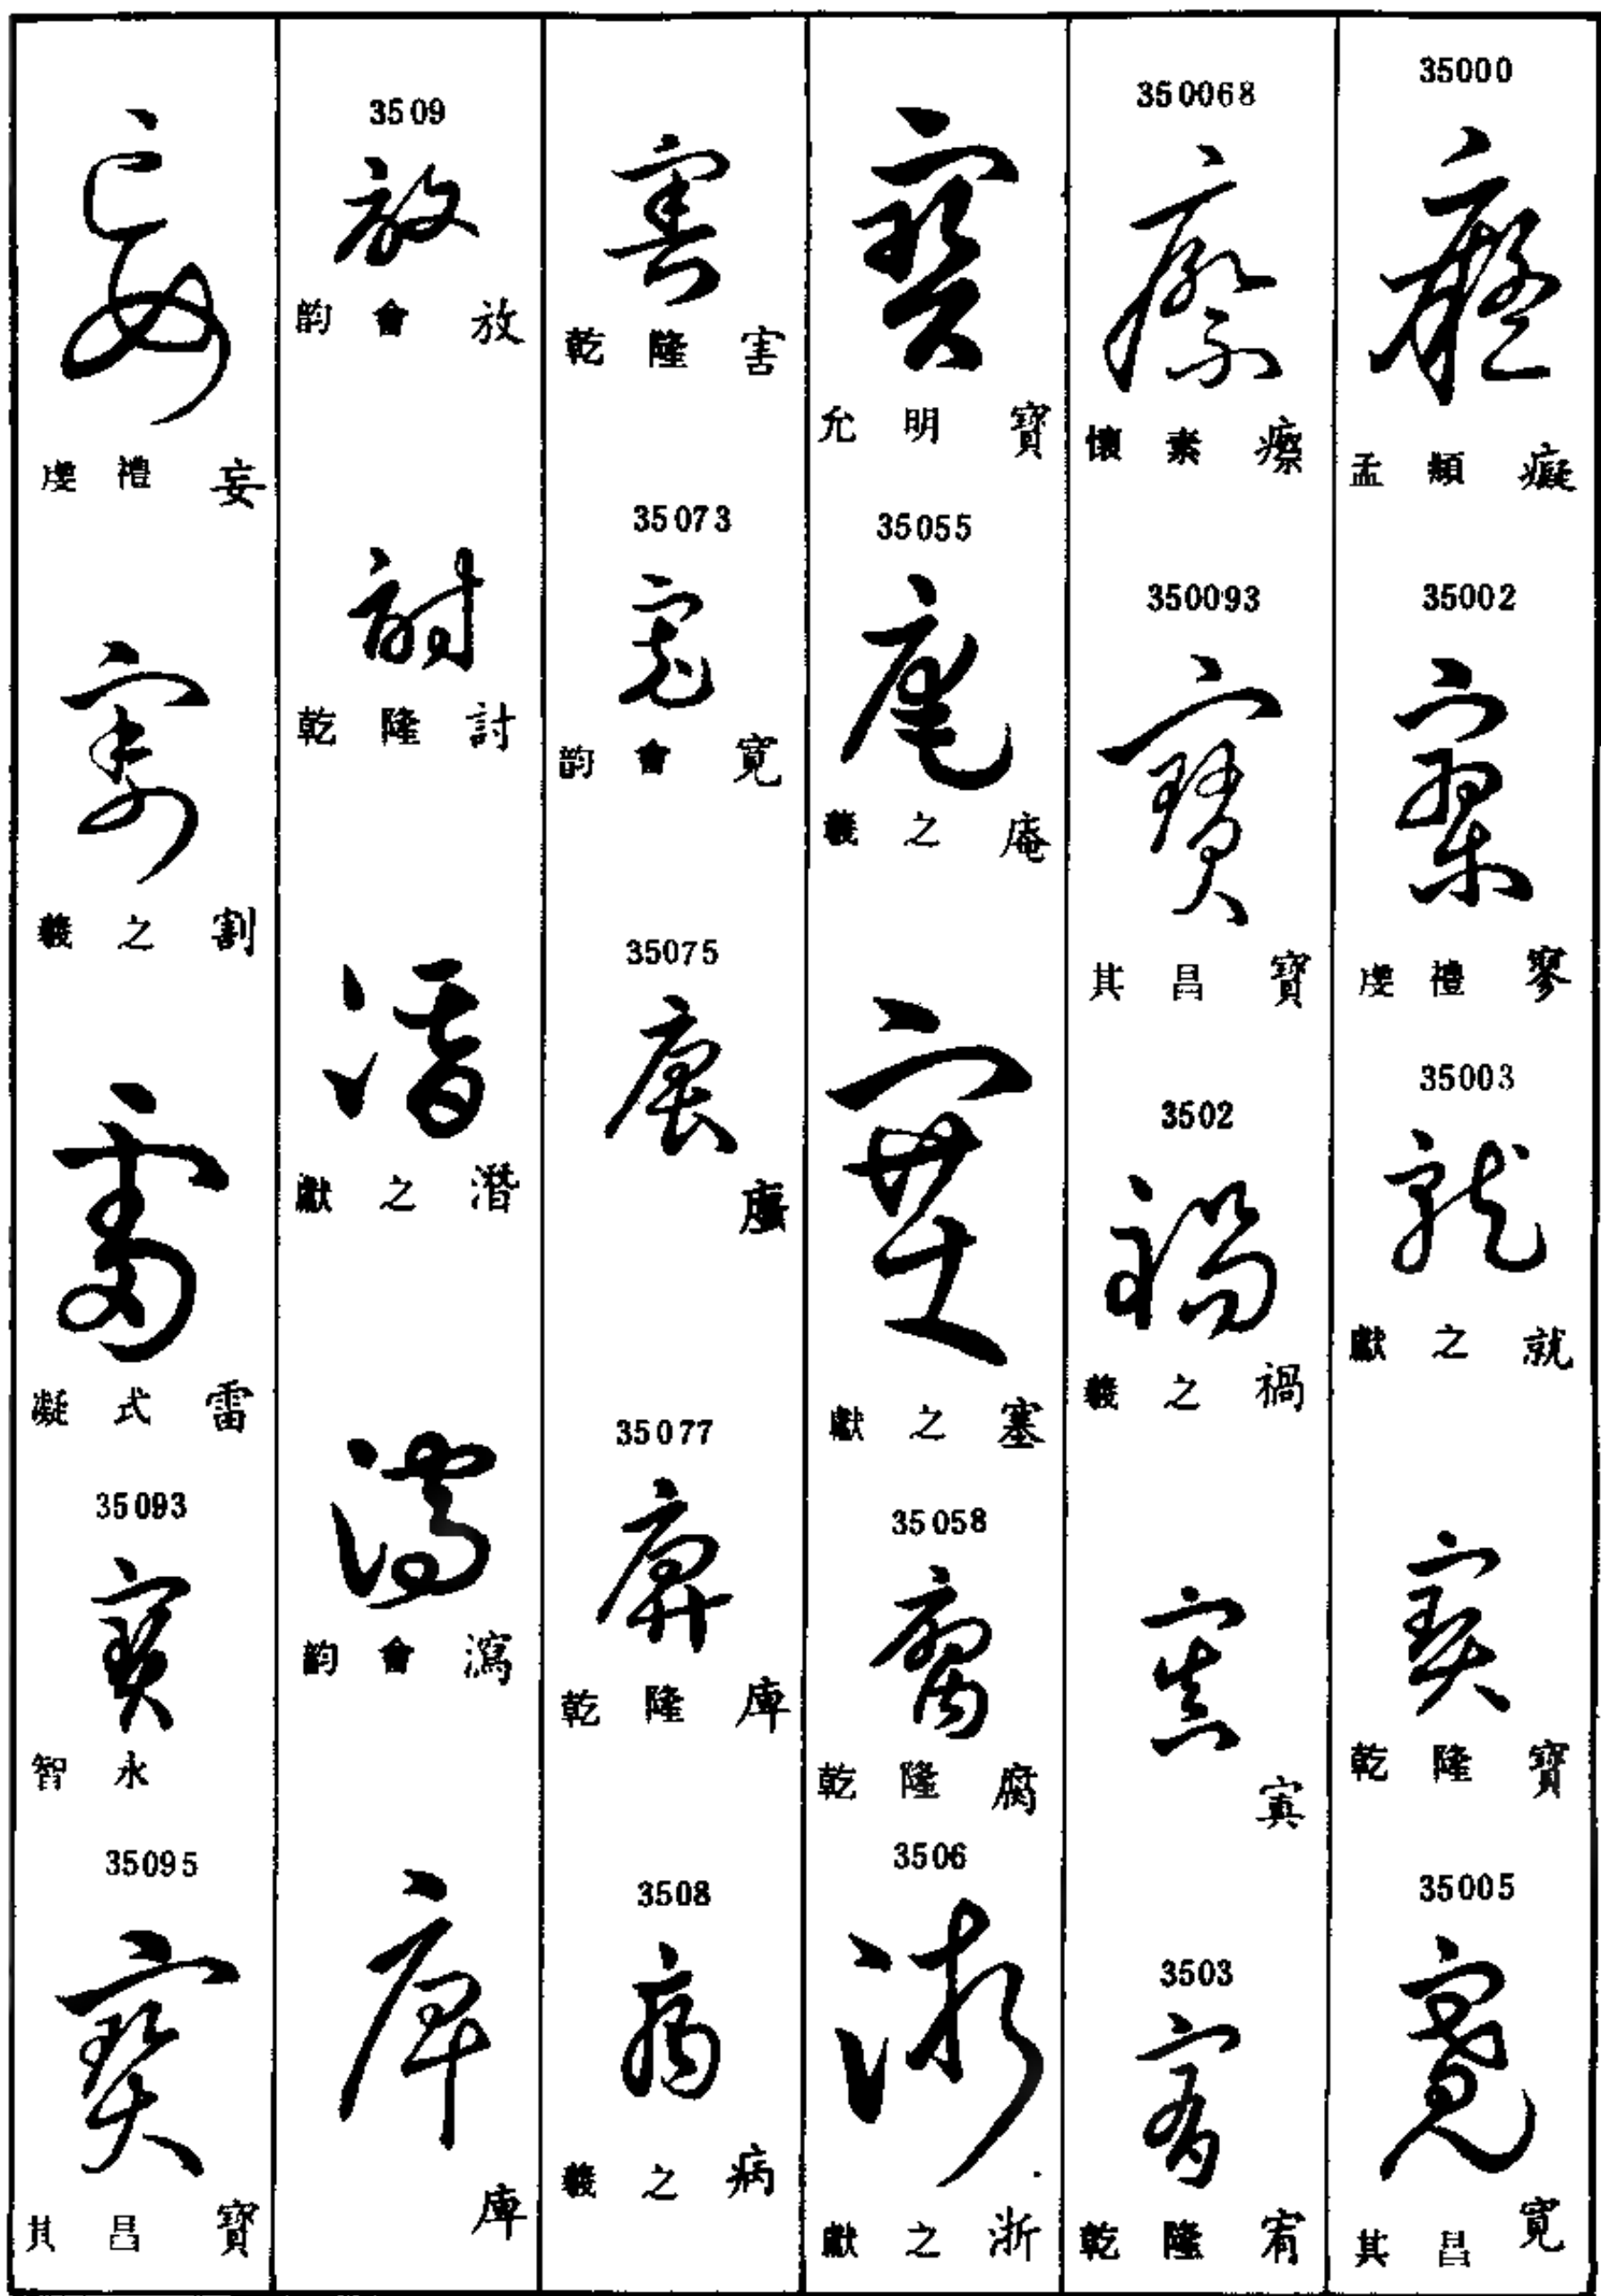 35000
癡
孟頫 癡
35002
寥
虔禮 寥
35003
就
獻之 就
寶
乾隆 寶
35005
寬
其昌 寬
350068
瘵
懷素 瘵
350093
寶
其昌 寶
3502
禍
羲之 禍
寘
寘
3503
宥
乾隆 宥
寶
允明 寶
35055
庵
羲之 庵
塞
獻之 塞
35058
腐
乾隆 腐
3506
浙
獻之 浙
害
乾隆 害
35073
寬
韵會 寬
35075
35077
庫
乾隆 庫
3508
病
羲之 病
3509
放
韵會 放
討
乾隆 討
潛
獻之 潛
瀉
韵會 瀉
庫
庫
妄
虔禮 妄
割
羲之 割
雷
凝式 雷
35093
寶
智永
35095
寶
其昌 寶